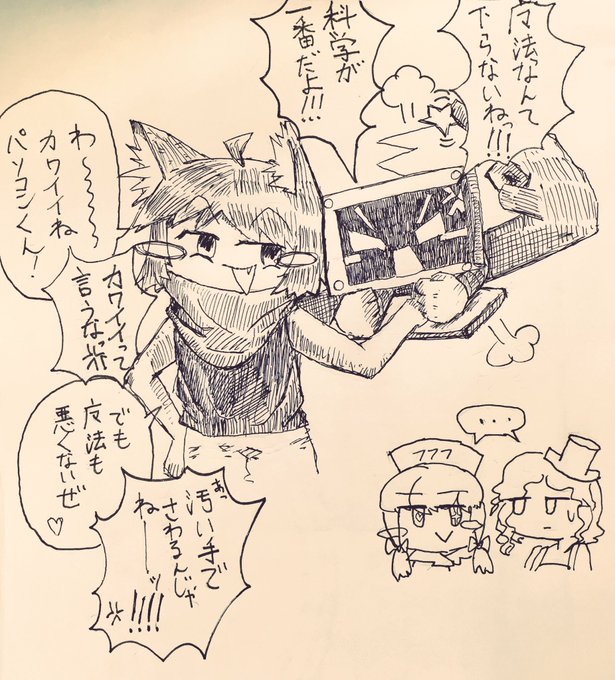 广法なんて
下らないねっ!!!
科学が
一番だよ!!!
わ〜〜〜
カワイイね
パソコンくん!
カワイイって
言うなっ
でも
广法も
悪くないぜ♡
あ゛
汚い手で
さわるんじゃ
ねーーッ
!!!!
...
777